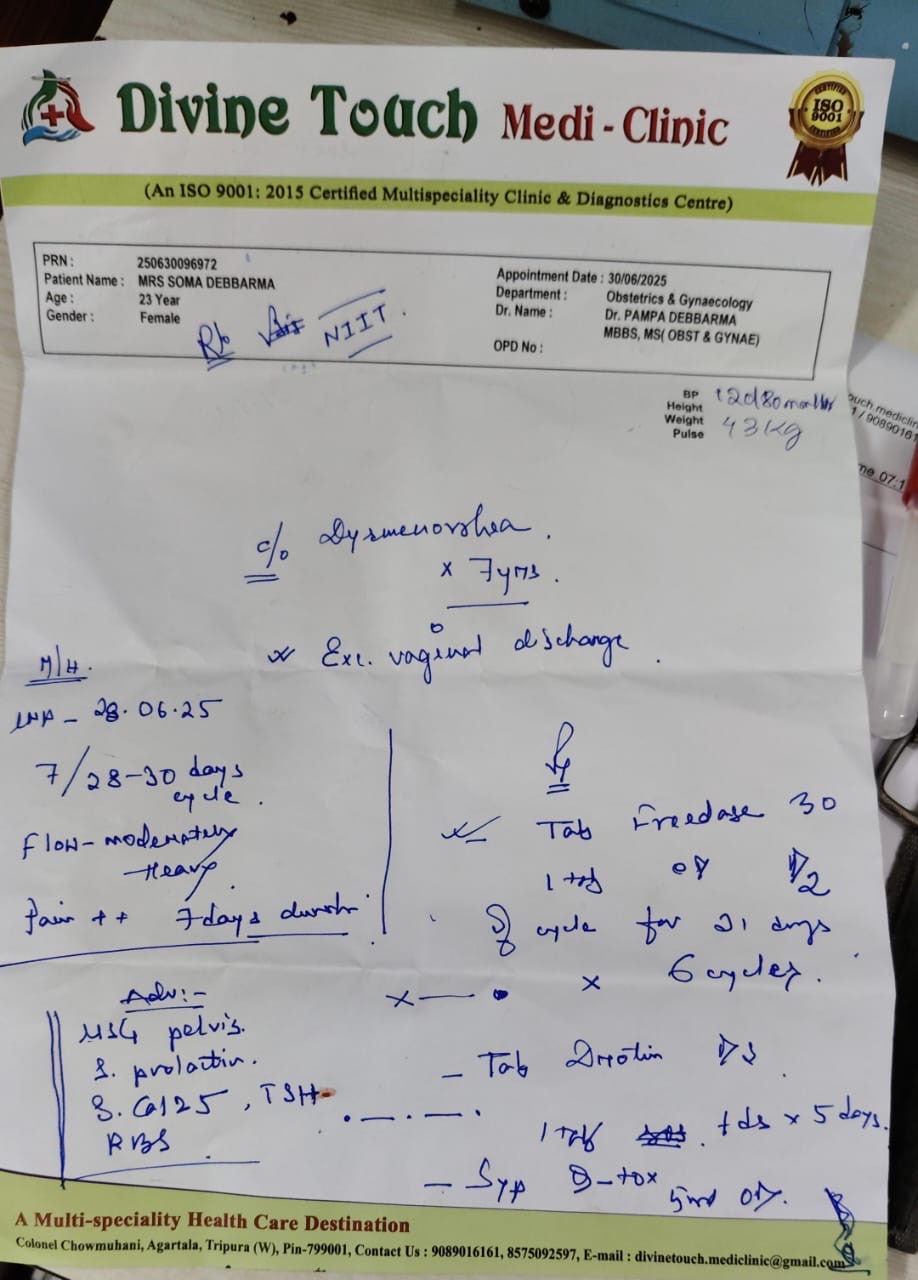 Divine Touch Medi - Clinic
CERTIFIED ISO 9001
(An ISO 9001: 2015 Certified Multispeciality Clinic & Diagnostics Centre)
PRN : 250630096972
Patient Name : MRS SOMA DEBBARMA
Age : 23 Year
Gender : Female
Appointment Date : 30/06/2025
Department : Obstetrics & Gynaecology
Dr. Name : Dr. PAMPA DEBBARMA
MBBS, MS( OBST & GYNAE)
OPD No :
R/o NIIT.
BP 120/80
Height
Weight 43 Kg
Pulse
c/o Dysmenorrhea.
x 7yrs.
Exc. vaginal discharge.
M/H.
LMP - 28.06.25
7/28-30 days
cycle.
Flow - moderately
Heavy
Pain ++ 7 days
Tab 30
1 tab OD D2
of cycle for 21 days
x 6 cycles.
Adv:-
USG pelvis.
S. prolactin.
S. Ca125, TSH
RBS
- Tab Drotin DS
1 tab tds x 5 days.
- Syp D-tox 5ml OD.
A Multi-speciality Health Care Destination
Colonel Chowmuhani, Agartala, Tripura (W), Pin-799001, Contact Us : 9089016161, 8575092597, E-mail : divinetouch.mediclinic@gmail.com